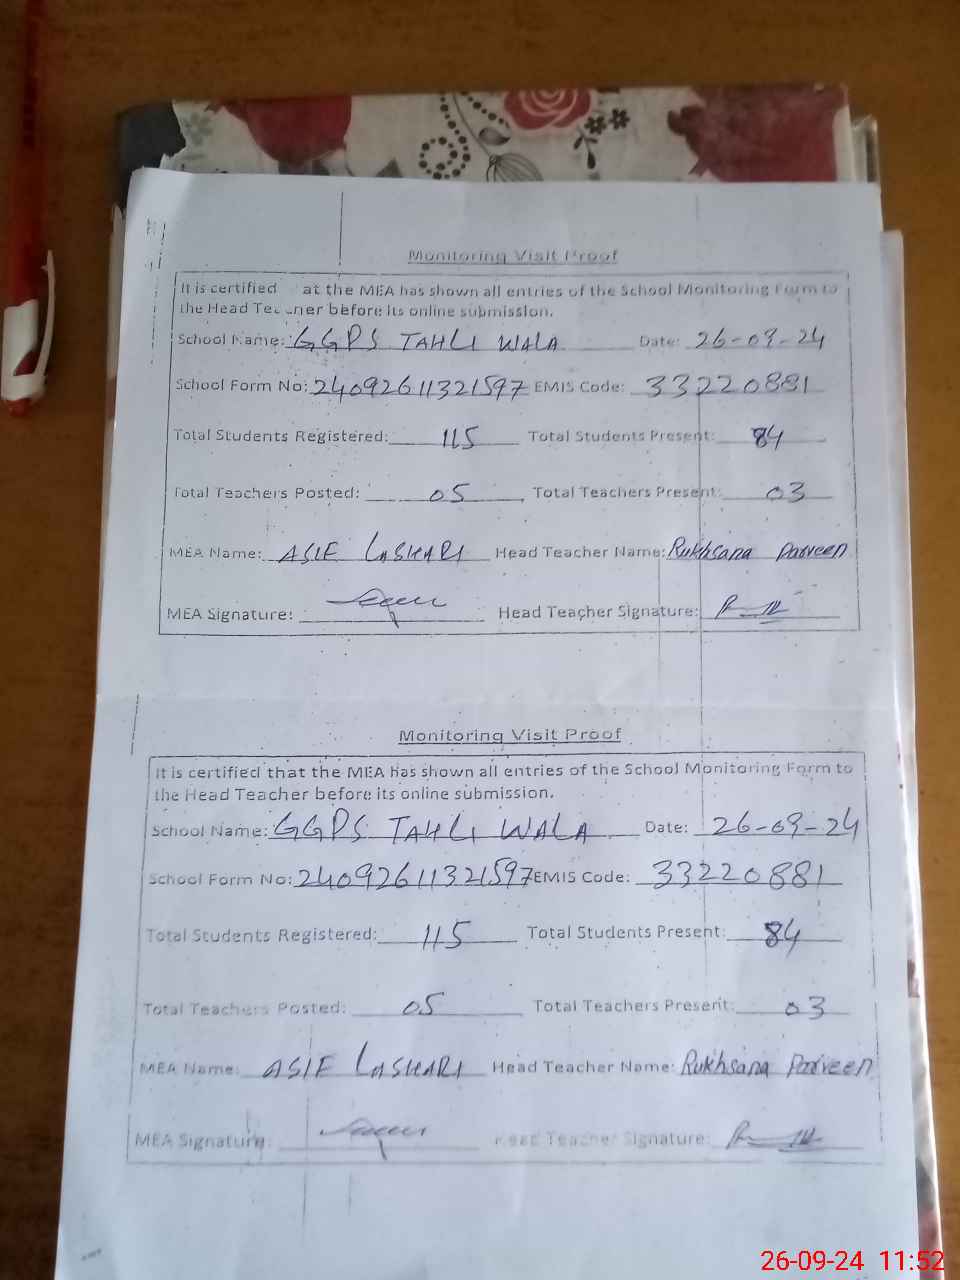 Monitoring Visit Proof
It is certified at the MEA has shown all entries of the School Monitoring Form to
the Head Teacher before its online submission.
School Name: GGPS TAHLI WALA Date: 26-09-24
School Form No: 24092611321597 EMIS Code: 33220881
Total Students Registered: 115 Total Students Present: 84
Total Teachers Posted: 05 Total Teachers Present: 03
MEA Name: ASIF LASHARI Head Teacher Name: Rukhsana Parveen
MEA Signature: Head Teacher Signature:
Monitoring Visit Proof
It is certified that the MEA has shown all entries of the School Monitoring Form to
the Head Teacher before its online submission.
School Name: GGPS TAHLI WALA Date: 26-09-24
School Form No: 24092611321597 EMIS Code: 33220881
Total Students Registered: 115 Total Students Present: 84
Total Teachers Posted: 05 Total Teachers Present: 03
MEA Name: ASIF LASHARI Head Teacher Name: Rukhsana Parveen
MEA Signature: Head Teacher Signature:
26-09-24 11:52